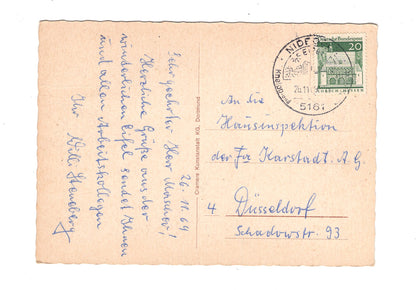 26.11.69
Sehr geehrter
Herr Marcher!
Herzliche Grüße aus der
winterlichen Eifel sendet Ihnen
und allen Arbeitskollegen
Ihr Willi
Cramers Kunstanstalt KG, Dortmund
NIDEGGEN
5161
20
An die
Hausinspektion
der Fa Karstadt A.G
4 Düsseldorf
Schadowstr. 93